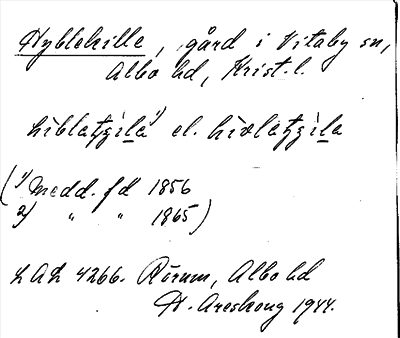 Hyblehille, gård i Vitaby sn,
Albo hd, Krist. l.
el.
(1) Medd. fd 1856
2) " " 1865)
LAL 4266. Rörum, Albo hd
H. Areskoug 1944.